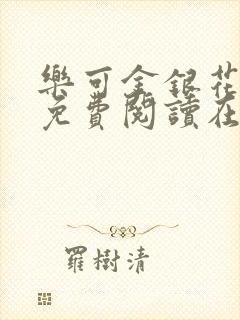 樂可金銀花
免費閱讀在
羅樹清